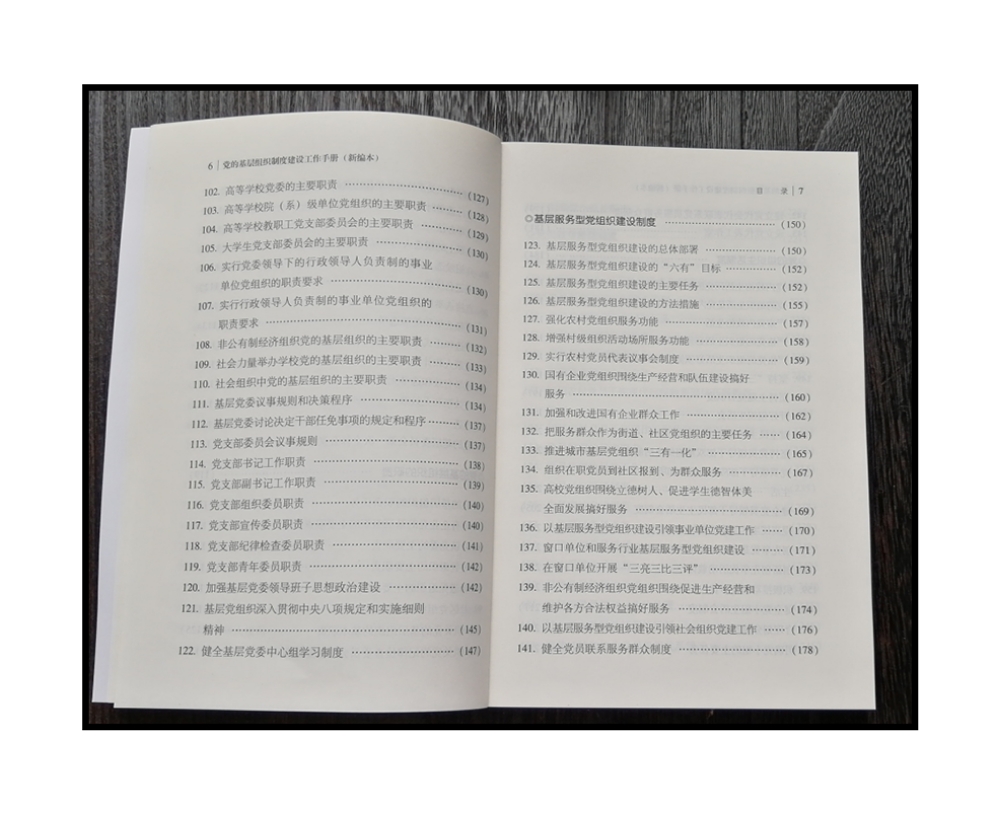 6 | 党的基层组织制度建设工作手册（新编本）
102. 高等学校党委的主要职责 ……………………（127）
103. 高等学校院（系）级单位党组织的主要职责 ………（128）
104. 高等学校教职工党支部委员会的主要职责 …………（129）
105. 大学生党支部委员会的主要职责 …………………（130）
106. 实行党委领导下的行政领导人负责制的事业
单位党组织的职责要求 ……………………（130）
107. 实行行政领导人负责制的事业单位党组织的
职责要求 ……………………………………（131）
108. 非公有制经济组织党的基层组织的主要职责 ………（132）
109. 社会力量举办学校党的基层组织的主要职责 ………（133）
110. 社会组织中党的基层组织的主要职责 ……………（134）
111. 基层党委议事规则和决策程序 ……………………（134）
112. 基层党委讨论决定干部任免事项的规定和程序 ……（137）
113. 党支部委员会议事规则 ……………………………（137）
114. 党支部书记工作职责 ………………………………（138）
115. 党支部副书记工作职责 ……………………………（139）
116. 党支部组织委员职责 ………………………………（140）
117. 党支部宣传委员职责 ………………………………（140）
118. 党支部纪律检查委员职责 …………………………（141）
119. 党支部青年委员职责 ………………………………（142）
120. 加强基层党委领导班子思想政治建设 ……………（142）
121. 基层党组织深入贯彻中央八项规定和实施细则
精神 …………………………………………（145）
122. 健全基层党委中心组学习制度 ……………………（147）
目 录 | 7
◎基层服务型党组织建设制度 ……………………（150）
123. 基层服务型党组织建设的总体部署 ………………（150）
124. 基层服务型党组织建设的“六有”目标 ……………（152）
125. 基层服务型党组织建设的主要任务 ………………（152）
126. 基层服务型党组织建设的方法措施 ………………（155）
127. 强化农村党组织服务功能 …………………………（157）
128. 增强村级组织活动场所服务功能 …………………（158）
129. 实行农村党员代表议事会制度 ……………………（159）
130. 国有企业党组织围绕生产经营和队伍建设搞好
服务 …………………………………………（160）
131. 加强和改进国有企业群众工作 ……………………（162）
132. 把服务群众作为街道、社区党组织的主要任务 ……（164）
133. 推进城市基层党组织“三有一化” …………………（165）
134. 组织在职党员到社区报到、为群众服务 …………（167）
135. 高校党组织围绕立德树人、促进学生德智体美
全面发展搞好服务 …………………………（169）
136. 以基层服务型党组织建设引领事业单位党建工作 …（170）
137. 窗口单位和服务行业基层服务型党组织建设 ……（171）
138. 在窗口单位开展“三亮三比三评” …………………（173）
139. 非公有制经济组织党组织围绕促进生产经营和
维护各方合法权益搞好服务 ………………（174）
140. 以基层服务型党组织建设引领社会组织党建工作 …（176）
141. 健全党员联系服务群众制度 ………………………（178）